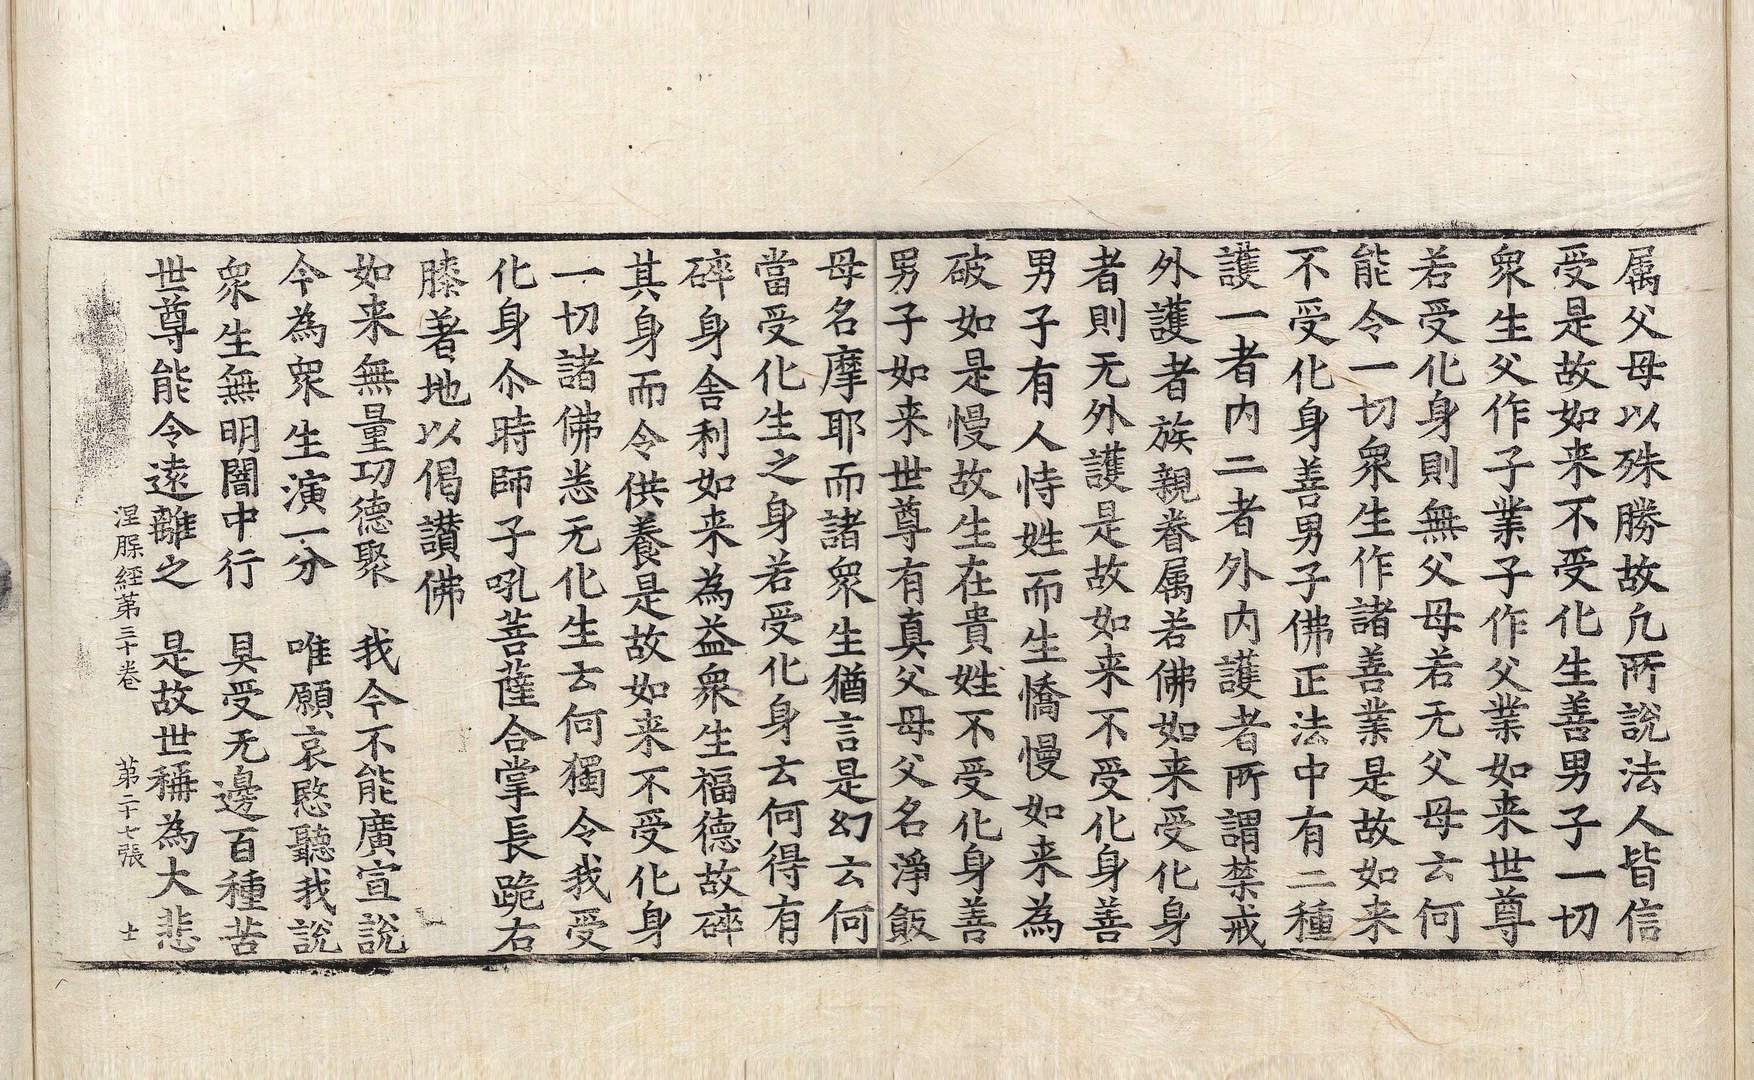 属父母以殊勝故凢所說法人皆信
受是故如来不受化生善男子一切
衆生父作子業子作父業如来世尊
若受化身則無父母若无父母云何
能令一切衆生作諸善業是故如来
不受化身善男子佛正法中有二種
護一者内二者外内護者所謂禁戒
外護者族親眷属若佛如来受化身
者則无外護是故如来不受化身善
男子有人恃姓而生憍慢如来為
破如是慢故生在貴姓不受化身善
男子如来世尊有真父母父名淨飯
母名摩耶而諸衆生猶言是幻云何
當受化生之身若受化身云何得有
碎身舍利如来為益衆生福德故碎
其身而令供養是故如来不受化身
一切諸佛悉无化生云何獨令我受
化身尒時師子吼菩薩合掌長跪右
膝著地以偈讃佛
如来無量功德聚　我今不能廣宣說
今為衆生演一分　唯願哀愍聽我說
衆生無明闇中行　具受无邊百種苦
世尊能令遠離之　是故世稱為大悲
涅槃經第三十卷　第二十七張　士